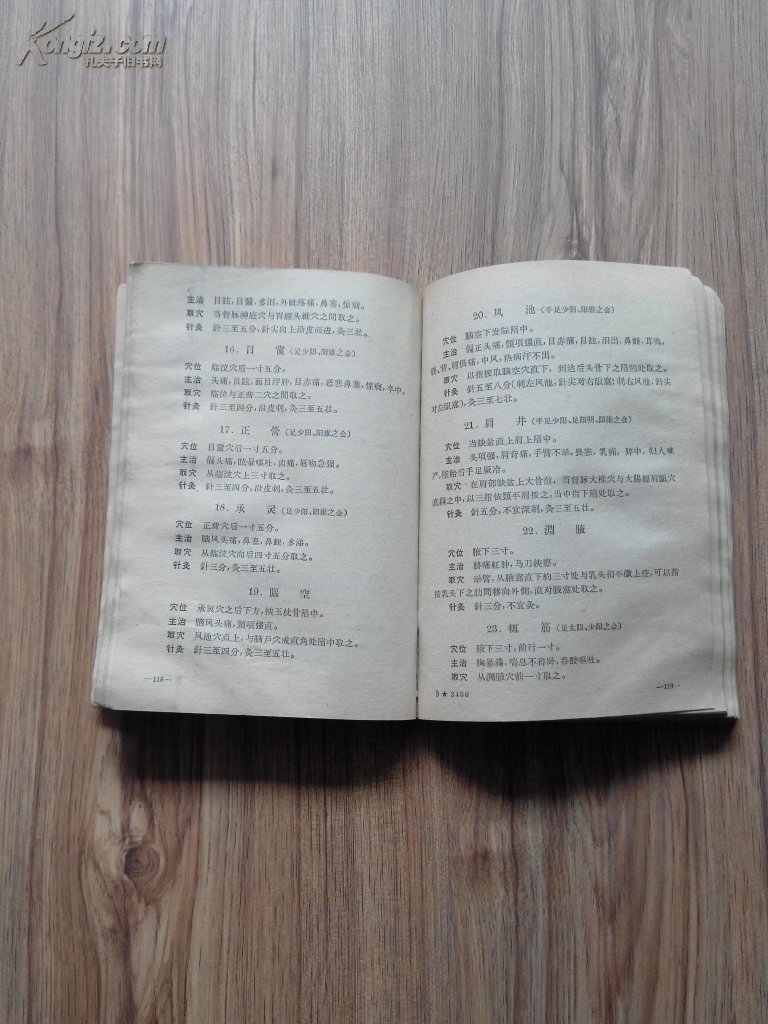 Kongfz.com
孔夫子旧书网
主治 目眩,目翳,多泪,外眦疼痛,鼻塞,惊痫。
取穴 当督脉神庭穴与胃經头維穴之間取之。
针灸 針三至五分,針尖向上沿皮而进,灸三壮。
16. 目 窗 (足少阳、阳維之会)
穴位 临泣穴后一寸五分。
主治 头痛,目眩,面目浮肿,目赤痛,恶寒鼻塞,惊痫,卒中。
取穴 临泣与正营二穴之間取之。
针灸 針三至四分,沿皮刺,灸三至五壮。
17. 正 营 (足少阳、阳維之会)
穴位 目窗穴后一寸五分。
主治 偏头痛,眩晕嘔吐,齿痛,唇吻急强。
取穴 从临泣穴上三寸取之。
针灸 針三至四分,沿皮刺,灸三至五壮。
18. 承 灵 (足少阳、阳維之会)
穴位 正营穴后一寸五分。
主治 脑风头痛,鼻塞,鼻衄,多涕。
取穴 从临泣穴向后四寸五分取之。
针灸 針三分,灸三至五壮。
19. 脑 空
穴位 承灵穴之后下方,挾玉枕骨陷中。
主治 脑风头痛,頸項强直。
取穴 风池穴直上,与脑戶穴成直角处陷中取之。
针灸 針三至四分,灸三至五壮。
—118—
20. 风 池 (手足少阳、阳維之会)
穴位 脑空下发际陷中。
主治 偏正头痛,頸項强直,目赤痛,目眩,泪出,鼻衄,耳鳴,
腰、背、肩俱痛,中风,热病汗不出。
取穴 以指按取脑空穴直下,到达后头骨下之陷窝处取之。
针灸 針五至八分(刺左风池,針尖对右眼窝;刺右风池,針尖
对左眼窝),灸三至七壮。
21. 肩 井 (手足少阳、足阳明、阳維之会)
穴位 当缺盆直上肩上陷中。
主治 头項强,肩背痛,手臂不举,畏寒,乳痈,卒中,妇人难
产,墜胎后手足厥冷。
取穴 在肩部缺盆上大骨前,当督脉大椎穴与大腸經肩髃穴
直綫之中,以三指依頸平肩按之,当中指下陷处取之。
针灸 針五分,不宜深刺,灸三至五壮。
22. 淵 腋
穴位 腋下三寸。
主治 胁痛紅肿,马刀挾癭。
取穴 举臂,从腋窝直下約三寸处与乳头相平微上些,可以指
按乳头下之肋間移向外側,直对腋窝处取之。
针灸 針三分,不宜灸。
23. 輒 筋 (足太阳、少阳之会)
穴位 腋下三寸,前行一寸。
主治 胸暴滿,喘息不得卧,吞酸嘔吐。
取穴 从淵腋穴前一寸取之。
9★2460
—119—